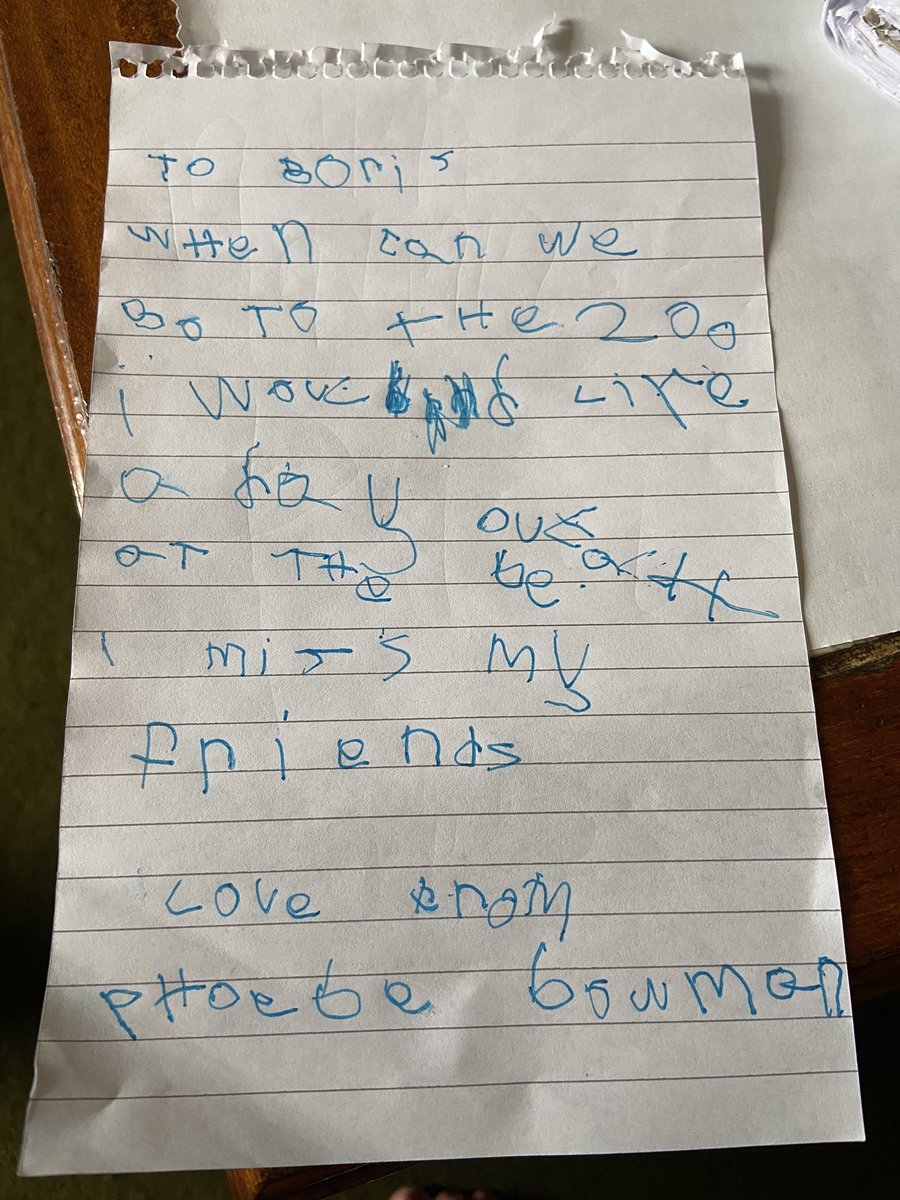 To Boris
when can we
go to the zoo
i would like
a day out
at the beach
I miss my
friends
Love from
Phoebe bowman